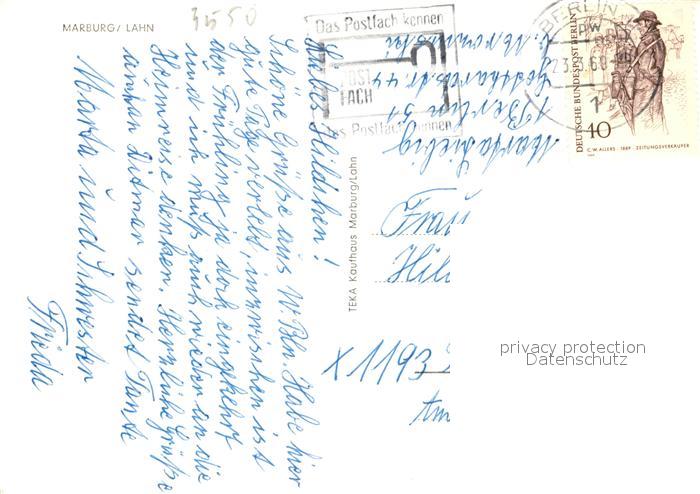 MARBURG/ LAHN
3550
Das Postfach kennen
POST
FACH
Das Postfach nennen
BERLIN
1
DEUTSCHE BUNDESPOST BERLIN
10
C.W. ALLERS · 1889 · ZEITUNGSVERKÄUFER
Liebes Hildchen!
Schöne Grüße aus W. Bln. Habe hier
gute Tage verlebt, inzwischen ist
der Frühling ja doch eingekehrt
und ich muß auch wieder an die
Heimreise denken. Herzliche Grüße
sendet Tante
Marta und Schwester
Frieda
1 Berlin 51
TEKA Kaufhaus Marburg/Lahn
Frau
Hil
X 1193
privacy protection
Datenschutz